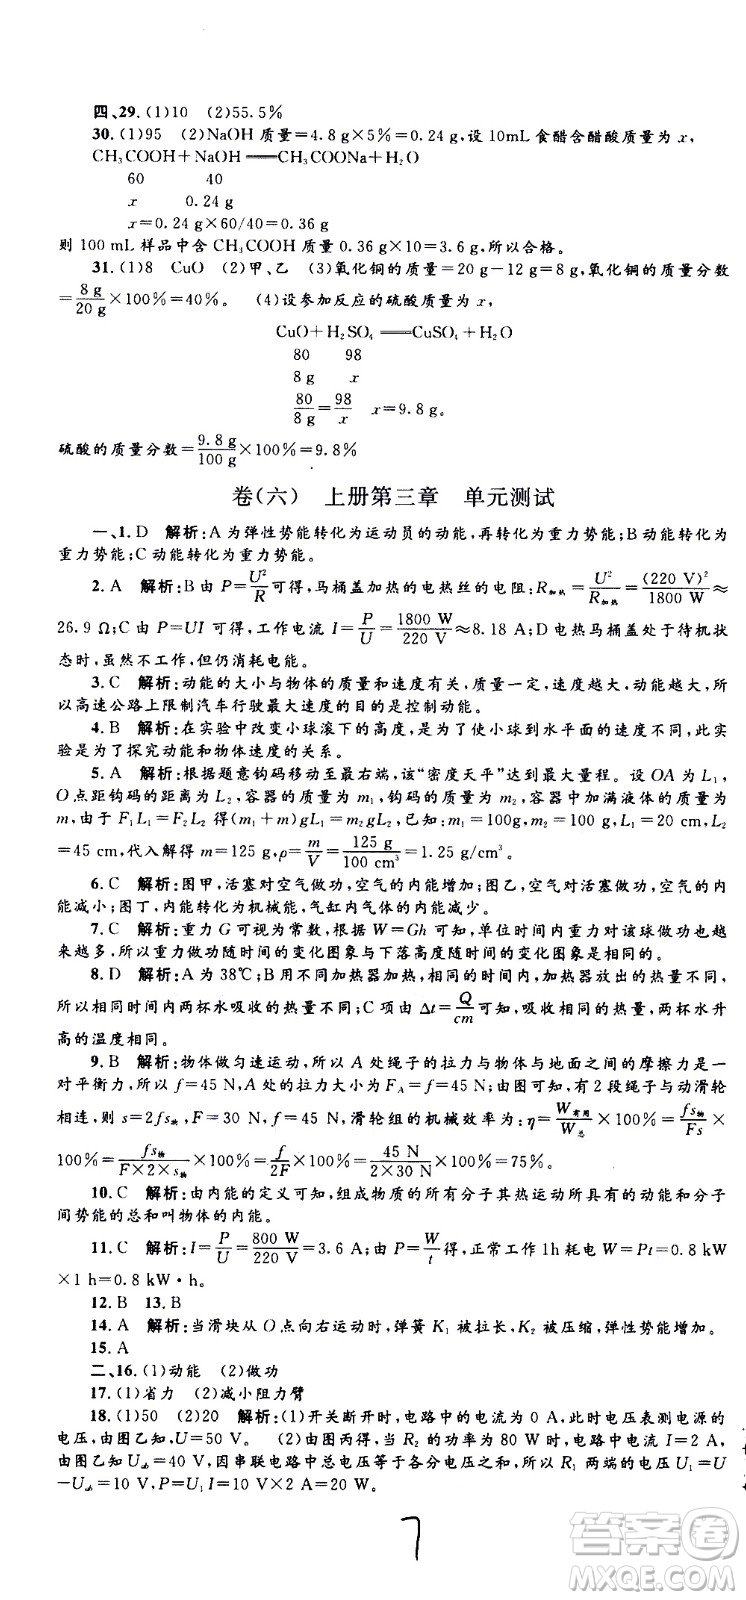 四、29.(1)10 (2)55.5%
30.(1)95 (2)NaOH 质量=4.8 g×5%=0.24 g,设 10mL 食醋含醋酸质量为 x,
CH₃COOH+NaOH══CH₃COONa+H₂O
60 40
x 0.24 g
x=0.24 g×60/40=0.36 g
则 100 mL 样品中含 CH₃COOH 质量 0.36 g×10=3.6 g,所以合格。
31.(1)8 CuO (2)甲、乙 (3)氧化铜的质量=20 g-12 g=8 g,氧化铜的质量分数
=8 g/20 g×100%=40%。 (4)设参加反应的硫酸质量为 x,
CuO+H₂SO₄══CuSO₄+H₂O
80 98
8 g x
80/8 g=98/x x=9.8 g。
硫酸的质量分数=9.8 g/100 g×100%=9.8%
卷(六) 上册第三章 单元测试
一、1. D 解析:A 为弹性势能转化为运动员的动能,再转化为重力势能;B 动能转化为
重力势能;C 动能转化为重力势能。
2. A 解析:B 由 P=U²/R可得,马桶盖加热的电热丝的电阻:R加热=U²/R加热=(220 V)²/1800 W≈
26.9 Ω;C 由 P=UI 可得,工作电流 I=P/U=1800 W/220 V≈8.18 A;D 电热马桶盖处于待机状
态时,虽然不工作,但仍消耗电能。
3. C 解析:动能的大小与物体的质量和速度有关,质量一定,速度越大,动能越大,所
以高速公路上限制汽车行驶最大速度的目的是控制动能。
4. B 解析:在实验中改变小球滚下的高度,是为了使小球到水平面的速度不同,此实
验是为了探究动能和物体速度的关系。
5. A 解析:根据题意钩码移动至最右端,该“密度天平”达到最大量程。设 OA 为 L₁,
O 点距钩码的距离为 L₂,容器的质量为 m₁,钩码的质量为 m₂,容器中加满液体的质量为
m,由于 F₁L₁=F₂L₂ 得(m₁+m)gL₁=m₂gL₂,已知:m₁=100g,m₂=100 g,L₁=20 cm,L₂
=45 cm,代入解得 m=125 g,ρ=m/V=125 g/100 cm³=1.25 g/cm³。
6. C 解析:图甲,活塞对空气做功,空气的内能增加;图乙,空气对活塞做功,空气的内
能减小;图丁,内能转化为机械能,气缸内气体的内能减少。
7. C 解析:重力 G 可视为常数,根据 W=Gh 可知,单位时间内重力对该球做功也越
来越多,所以重力做功随时间的变化图象与下落高度随时间的变化图象相同。
8. D 解析:A 为 38℃;B 用不同加热器加热,相同的时间内,加热器放出的热量不同,
所以相同时间内两杯水吸收的热量不同;C 项由 Δt=Q/cm可知,吸收相同的热量,两杯水升
高的温度相同。
9. B 解析:物体做匀速运动,所以 A 处绳子的拉力与物体与地面之间的摩擦力是一
对平衡力,所以 f=45 N,A 处的拉力大小为 FA=f=45 N;由图可知,有 2 段绳子与动滑轮
相连,则 s=2fs物,F=30 N,滑轮组的机械效率为:η=W有用/W总×100%=fs物/Fs×
100%=fs物/F×2×s物×100%=f/2F×100%=45 N/2×30 N×100%=75%。
10. C 解析:由内能的定义可知,组成物质的所有分子其热运动所具有的动能和分子
间势能的总和叫物体的内能。
11. C 解析:I=P/U=800 W/220 V=3.6 A,由 P=W/t得,正常工作 1h 耗电 W=Pt=0.8 kW
×1 h=0.8 kW·h。
12. B 13. B
14. A 解析:当滑块从 O 点向右运动时,弹簧 K₁ 被拉长,K₂ 被压缩,弹性势能增加。
15. A
二、16.(1)动能 (2)做功
17.(1)省力 (2)减小阻力臂
18.(1)50 (2)20 解析:(1)开关断开时,电路中的电流为 0 A,此时电压表测电源的
电压,由图乙知,U=50 V。 (2)由图丙得,当 R₂ 的功率为 80 W 时,电路中电流 I=2 A,由
图乙知 U=40 V,因串联电路中总电压等于各分电压之和,所以 R₁ 两端的电压 U₁=U-
U=10 V,P=U₁I=10 V×2 A=20 W。
7
答案圈
MXQE.COM